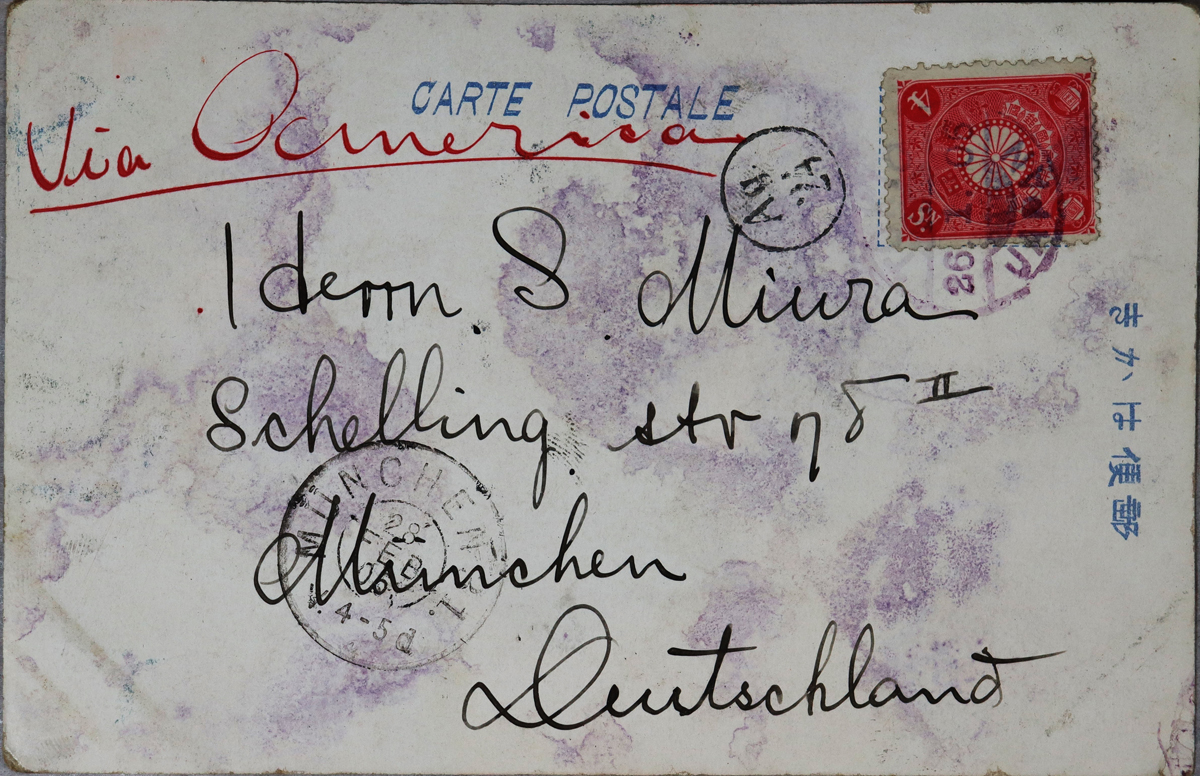 CARTE POSTALE
Via America
Herrn. S. Miura
Schelling str 78 II
München
Deutschland
きかは便郵
MÜNCHEN
28
FEB
4-5
24
4
26